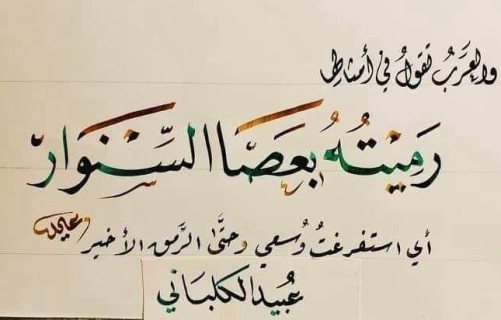 والعَرَبُ تقولُ في أمثالِها
رَمَيْتُهُ بعَصَا السِّنْوَارْ
أي استفرغتُ وُسعي وحتَّى الرَّمق الأخير
عُبيد الكلباني